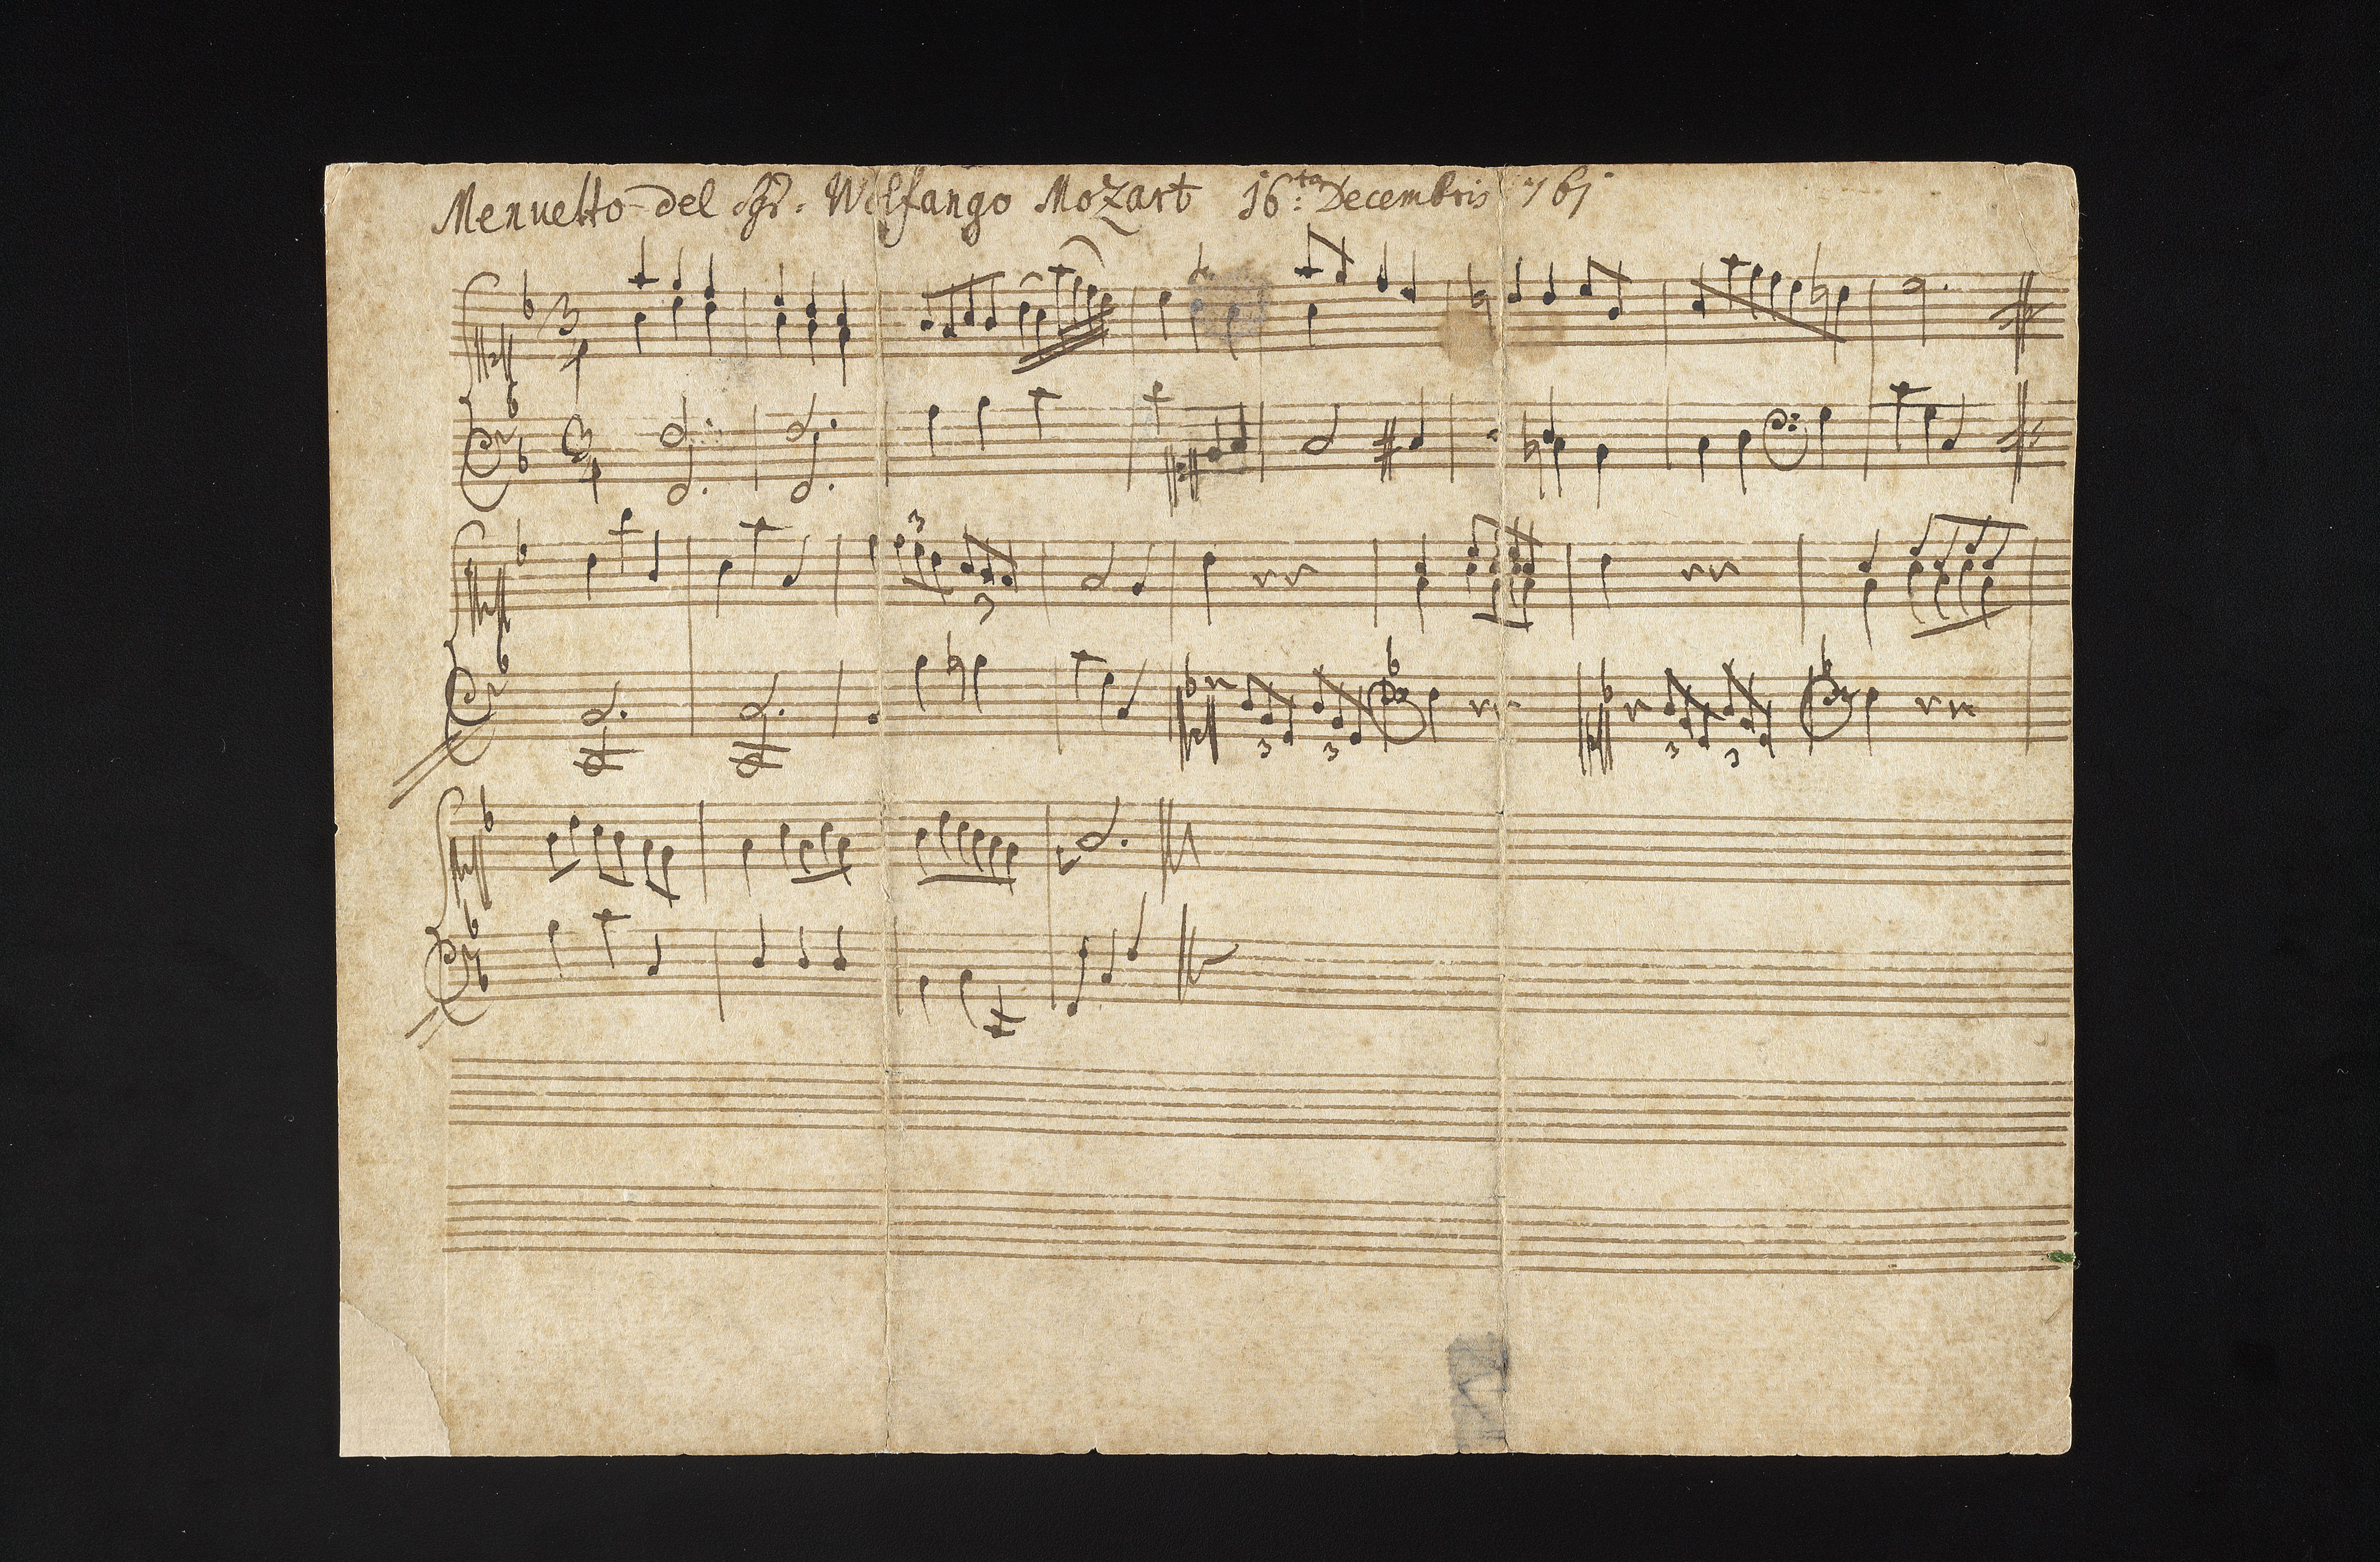 Menuetto del Sgr. Wolfango Mozart 16ta: Decembris 1761.
3
4
3
4
3
3
3 3 3 3